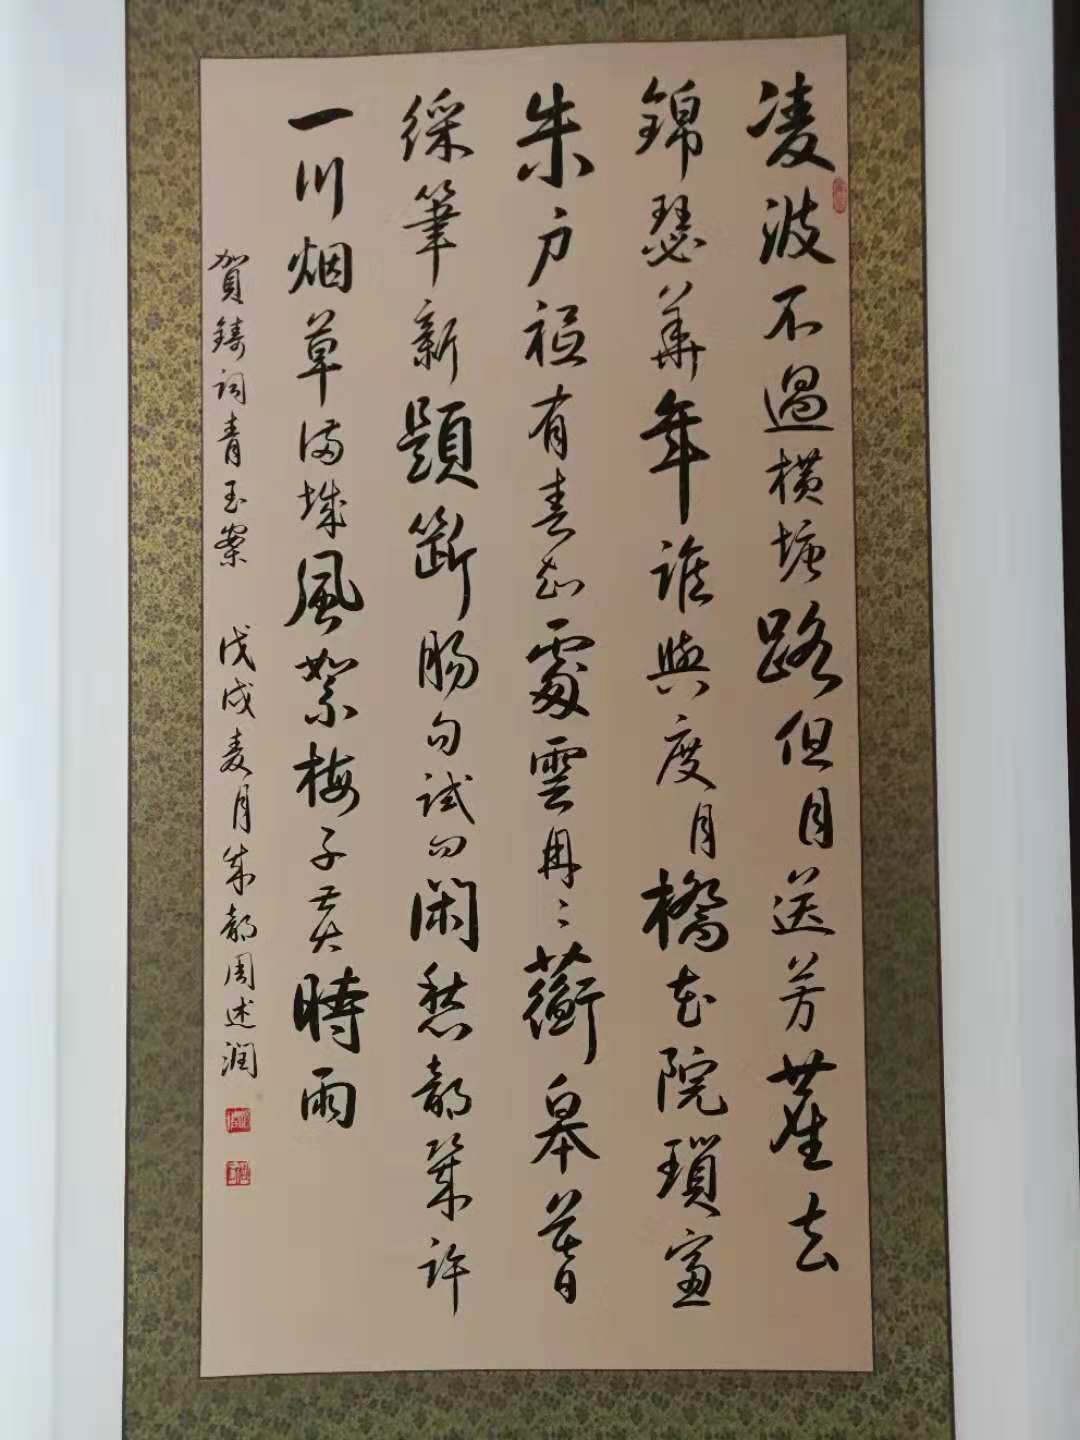 凌波不過橫塘路但目送芳塵去
錦瑟華年誰與度月橋花院瑣窗
朱戶祗有春知處雲冉〻蘅皋暮
綵筆新題斷腸句試問閑愁都幾許
一川烟草滿城風絮梅子黃時雨
賀鑄詞青玉案 戊戌夏月成都周述潤